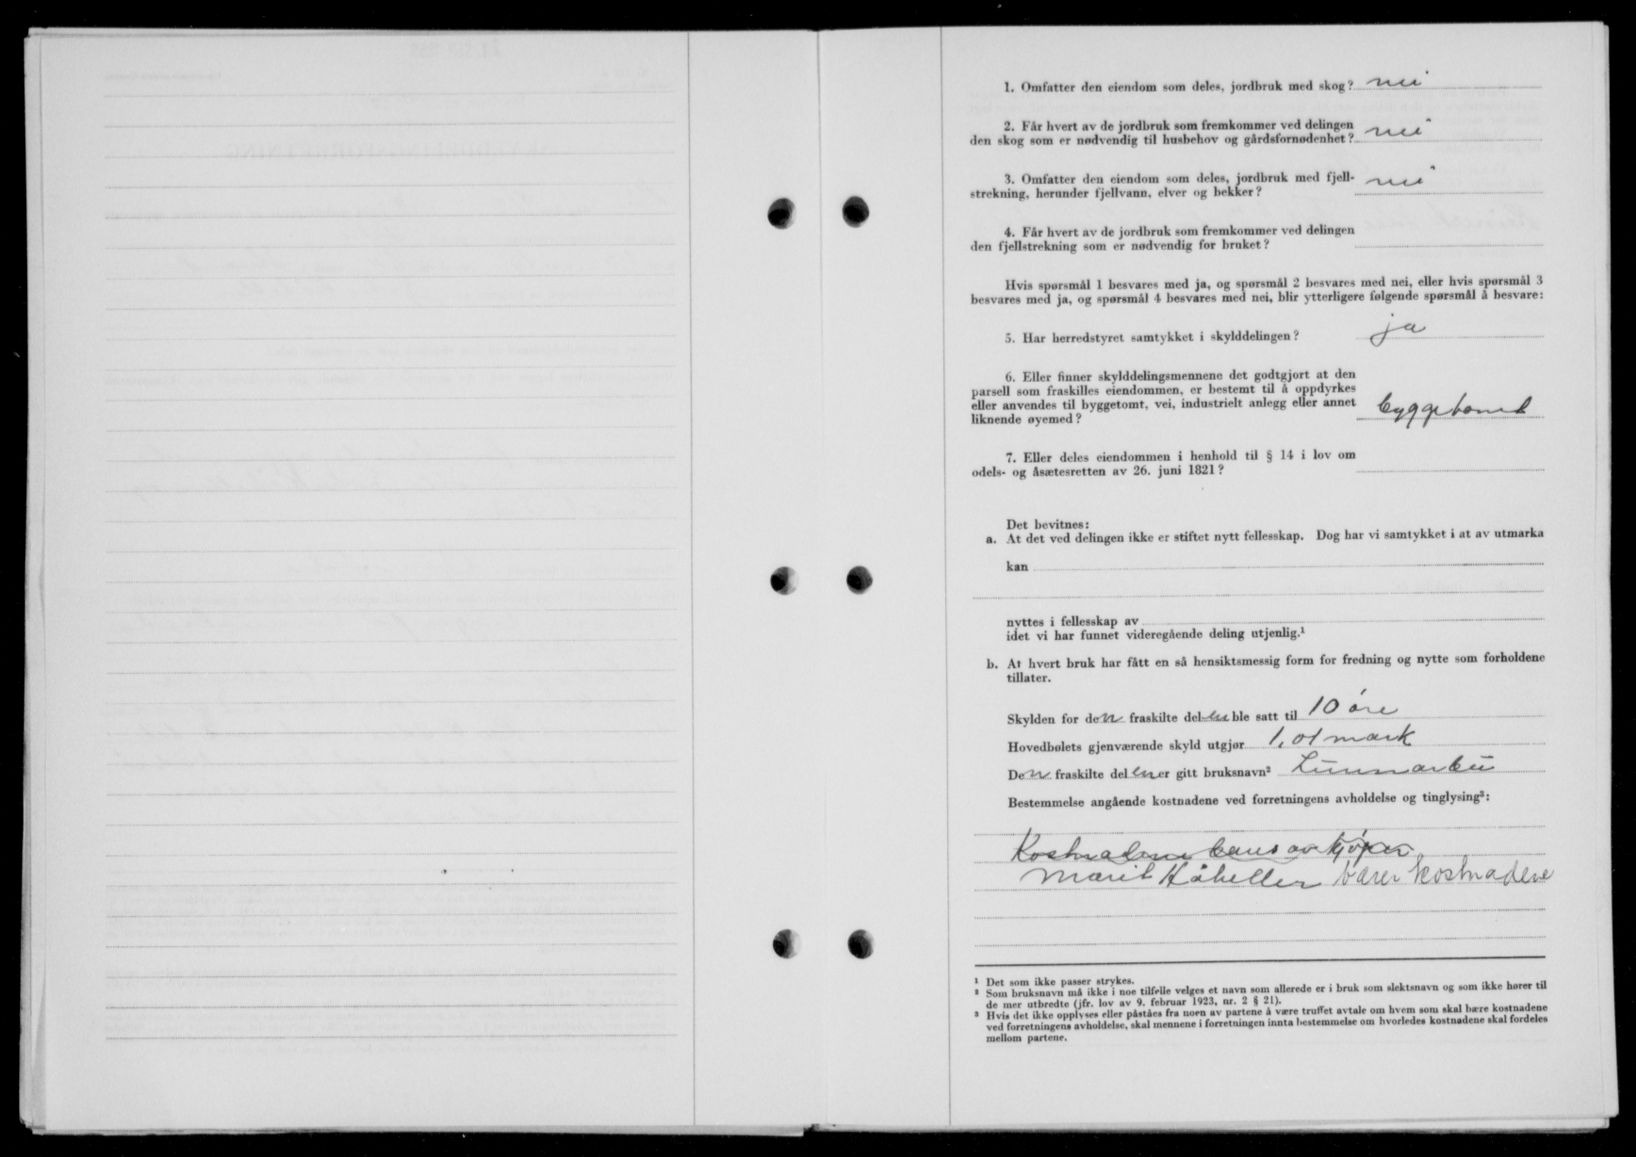 1. Omfatter den eiendom som deles, jordbruk med skog? nei
2. Får hvert av de jordbruk som fremkommer ved delingen
den skog som er nødvendig til husbehov og gårdsfornødenhet? nei
3. Omfatter den eiendom som deles, jordbruk med fjell-
strekning, herunder fjellvann, elver og bekker? nei
4. Får hvert av de jordbruk som fremkommer ved delingen
den fjellstrekning som er nødvendig for bruket?
Hvis spørsmål 1 besvares med ja, og spørsmål 2 besvares med nei, eller hvis spørsmål 3
besvares med ja, og spørsmål 4 besvares med nei, blir ytterligere følgende spørsmål å besvare:
5. Har herredstyret samtykket i skylddelingen? ja
6. Eller finner skylddelingsmennene det godtgjort at den
parsell som fraskilles eiendommen, er bestemt til å oppdyrkes
eller anvendes til byggetomt, vei, industrielt anlegg eller annet
liknende øyemed? byggetomt
7. Eller deles eiendommen i henhold til § 14 i lov om
odels- og åsætesretten av 26. juni 1821?
Det bevitnes:
a. At det ved delingen ikke er stiftet nytt fellesskap. Dog har vi samtykket i at av utmarka
kan
nyttes i fellesskap av
idet vi har funnet videregående deling utjenlig.¹
b. At hvert bruk har fått en så hensiktsmessig form for fredning og nytte som forholdene
tillater.
Skylden for den fraskilte delen ble satt til 10 øre
Hovedbølets gjenværende skyld utgjør 1,01 mark
Den fraskilte delen er gitt bruksnavn²
Bestemmelse angående kostnadene ved forretningens avholdelse og tinglysing³:
Kostnadene bæres av kjøper
Marit Håheller bærer kostnadene
¹ Det som ikke passer strykes.
² Som bruksnavn må ikke i noe tilfelle velges et navn som allerede er i bruk som slektsnavn og som ikke hører til
de mer utbredte (jfr. lov av 9. februar 1923, nr. 2 § 21).
³ Hvis det ikke opplyses eller påståes fra noen av partene å være truffet avtale om hvem som skal bære kostnadene
ved forretningens avholdelse, skal mennene i forretningen innta bestemmelse om hvorledes kostnadene skal fordeles
mellom partene.